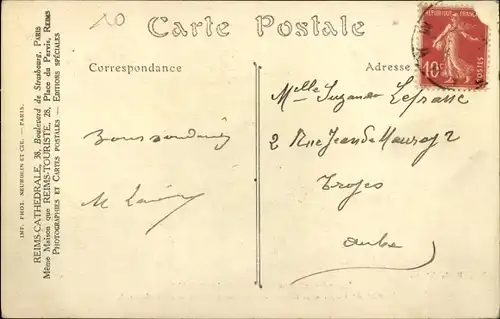 10
Carte Postale
Correspondance
Adresse
RÉPUBLIQUE FRANÇAISE
10c
POSTES
Mlle Suzanne Lefranc
2 Rue Jean de Mauroy 2
Troyes
Aube
M
REIMS-CATHEDRALE, 38, Boulevard de Strasbourg, PARIS
Même Maison que REIMS-TOURISTE, 28, Place du Parvis, REIMS
PHOTOGRAPHIES ET CARTES POSTALES — EDITIONS SPÉCIALES
IMP. PHOT. NEURDEIN ET CIE. — PARIS.